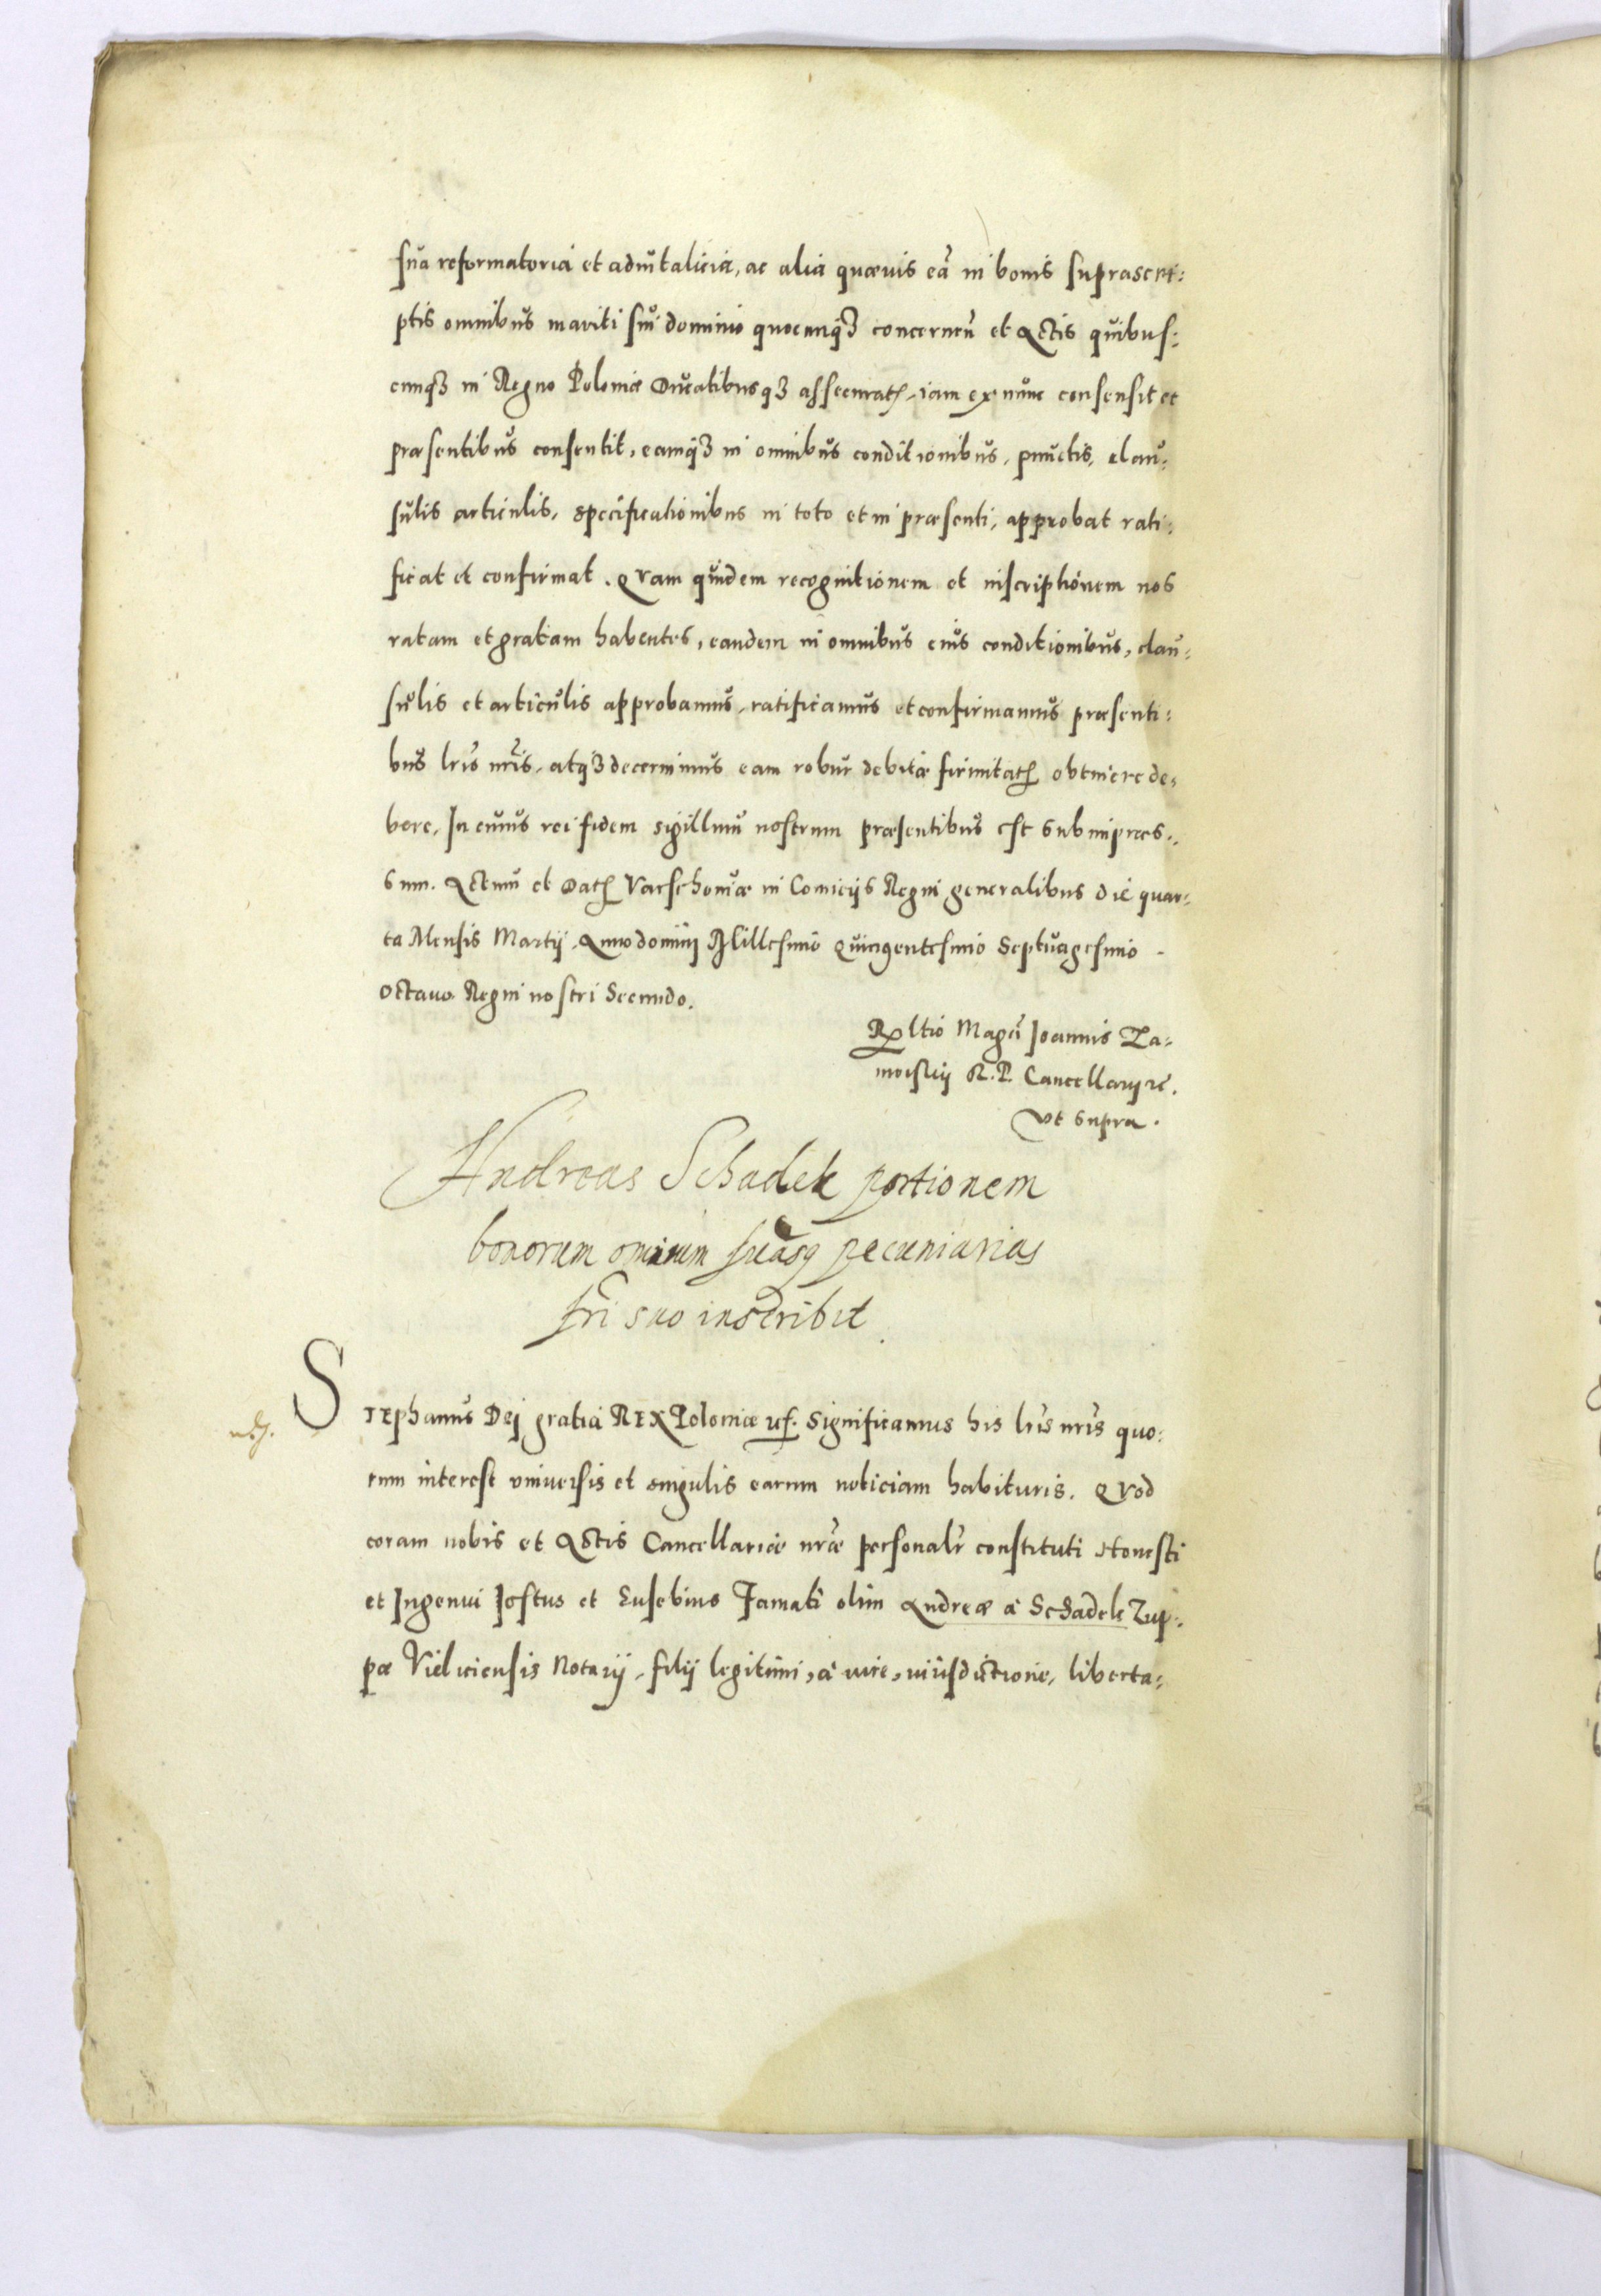 sua reformatoria et advitalicia, ac alia quævis eã in bonis suprascri:
ptis omnibus mariti sui dominio quocunq3 concernen̄ et Actis quibus:
cunq3 in Regno Poloniæ Ducatibusq3 assecurat, iam ex nunc consensit et
præsentibus consentit, eamq3 in omnibus conditionibus, punctis, clau:
sulis articulis, specificationibus in toto et in præsenti, approbat rati:
ficat et confirmat. Quam quidem recognitionem et inscriptionem nos
ratam et gratam habentes, eandem in omnibus eius conditionibus, clau:
sulis et articulis approbamus, ratificamus et confirmamus præsenti:
bus lris nris, atq3 decernimus eam robur debitæ firmitat obtinere de:
bere, In cuius rei fidem sigillum nostrum præsentibus est subimpres:
sum. Actum et Dat Varschoviæ in Comicijs Regni generalibus die quar:
ta Mensis Martij, Anno domini Millesimo Quingentesimo Septuagesimo
octavo. Regni nostri Secundo.
Rltio Magci Joannis Za:
moiscij R. P. Cancellarij rc.
vt supra.
Andreas Schadek portionem
bonorum omnium suasq pecuniarias
fri suo inscribit
Stephanus Dej gratia REX Poloniæ Significamus his lris nris quo:
rum interest vniversis et singulis earum noticiam habituris. Quod
coram nobis et Actis Cancellariæ nræ personalr constituti Honesti
et Ingenui Jostus et Eusebius Famati olim Andreæ à Schadek Zup:
pæ Vieliciensis Notarij, filij legitimi, à iure, iurisdictione, liberta: